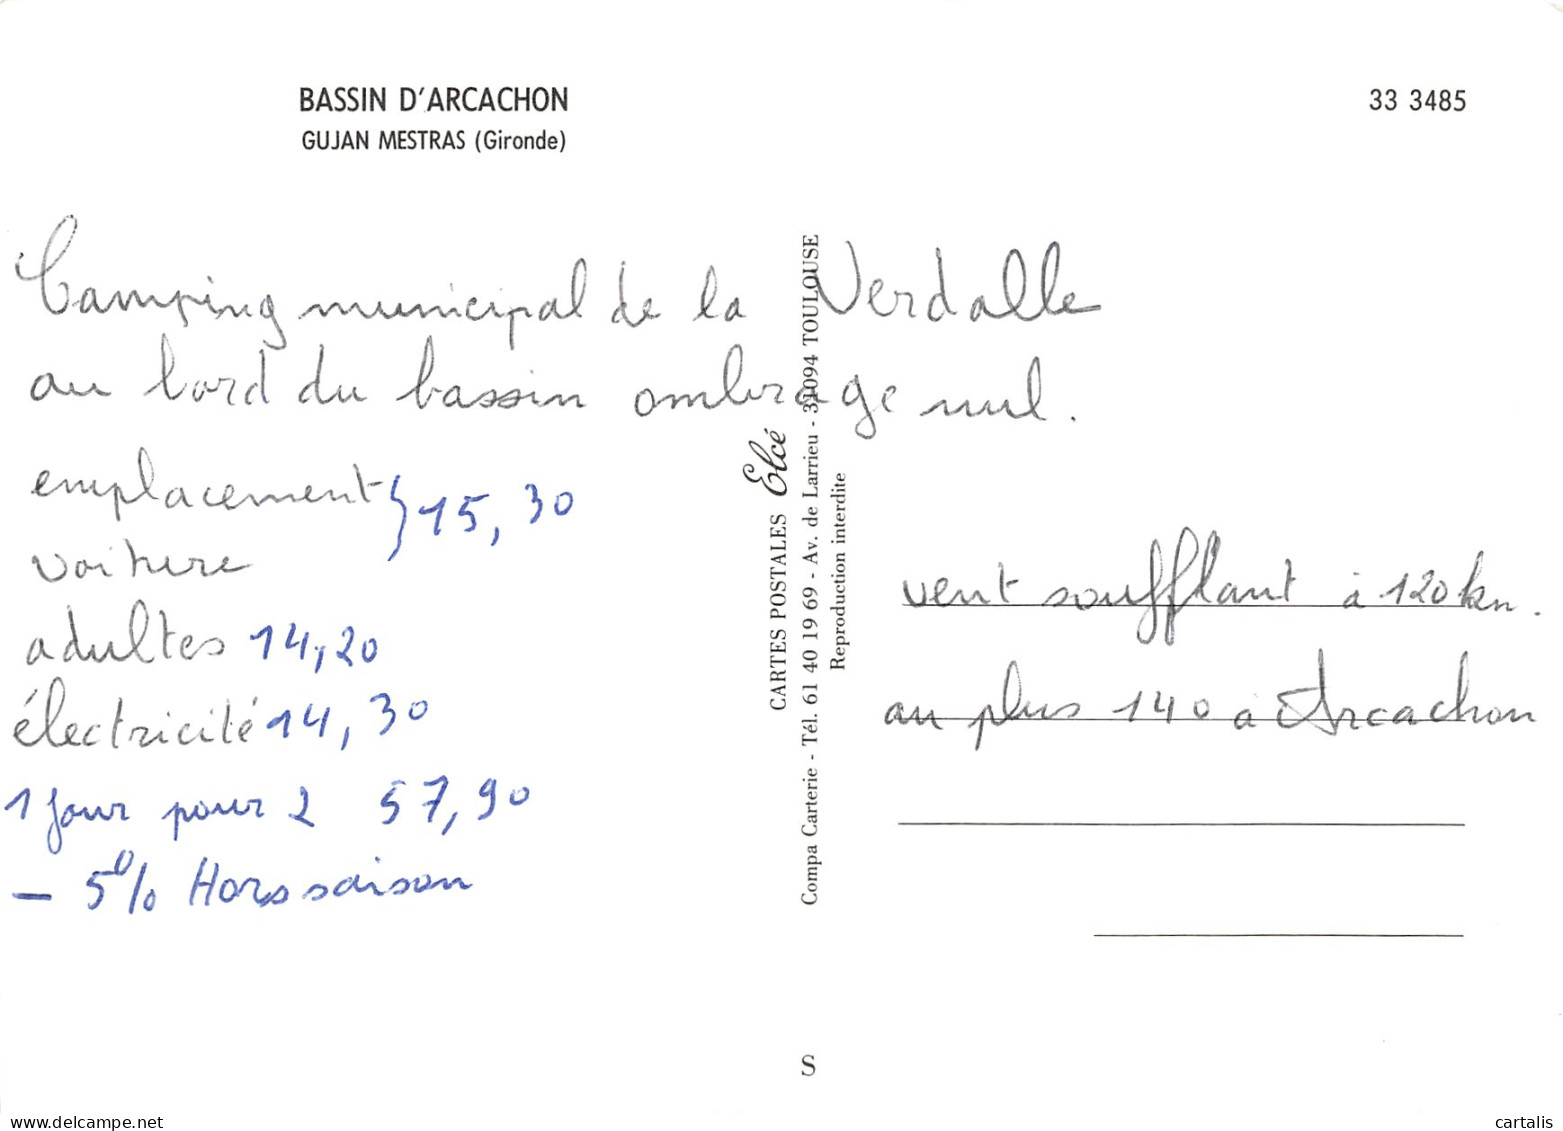 BASSIN D'ARCACHON
GUJAN MESTRAS (Gironde)
33 3485
Camping municipal de la Verdalle
au bord du bassin ombrage nul.
emplacement } 15,30
voiture
adultes 14,20
électricité 14,30
1 jour pour 2 57,90
- 5% Hors saison
CARTES POSTALES Elcé
Compa Carterie - Tél. 61 40 19 69 - Av. de Larrieu - 31094 TOULOUSE
Reproduction interdite
vent soufflant à 120 km.
au plus 140 à Arcachon
S
www.delcampe.net
cartalis